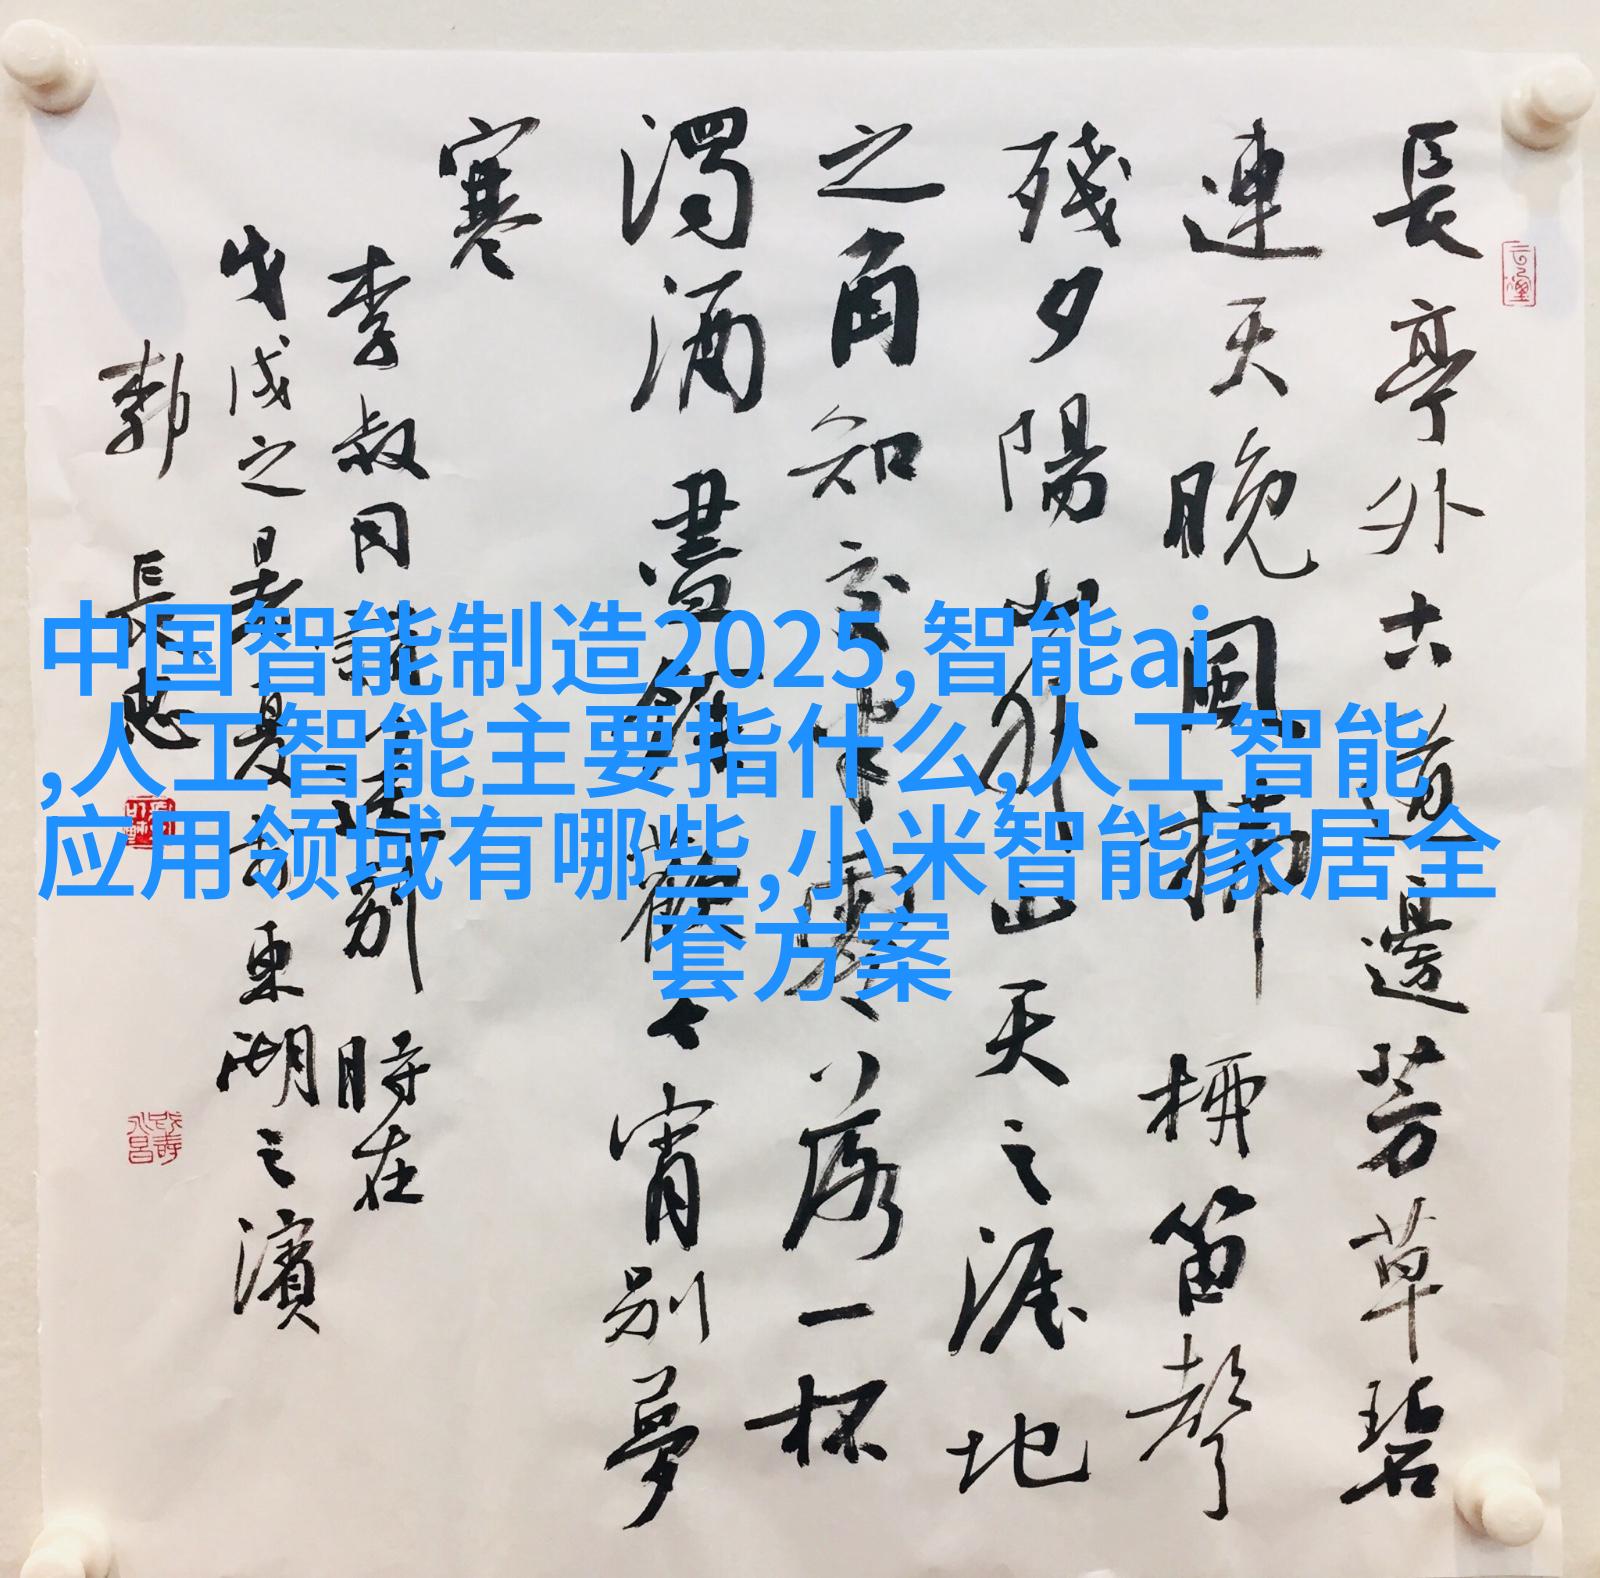 長亭外古道邊芳草碧
連天晚風拂柳笛聲
殘夕陽山外山天之涯地
之角知交半零落一杯
濁酒盡餘歡今宵別夢
寒
李叔同詞送別時在
戊戌之暑夏於東湖之濱
中国智能制造2025,智能ai
,人工智能主要指什么,人工智能
应用领域有哪些,小米智能家居全
套方案